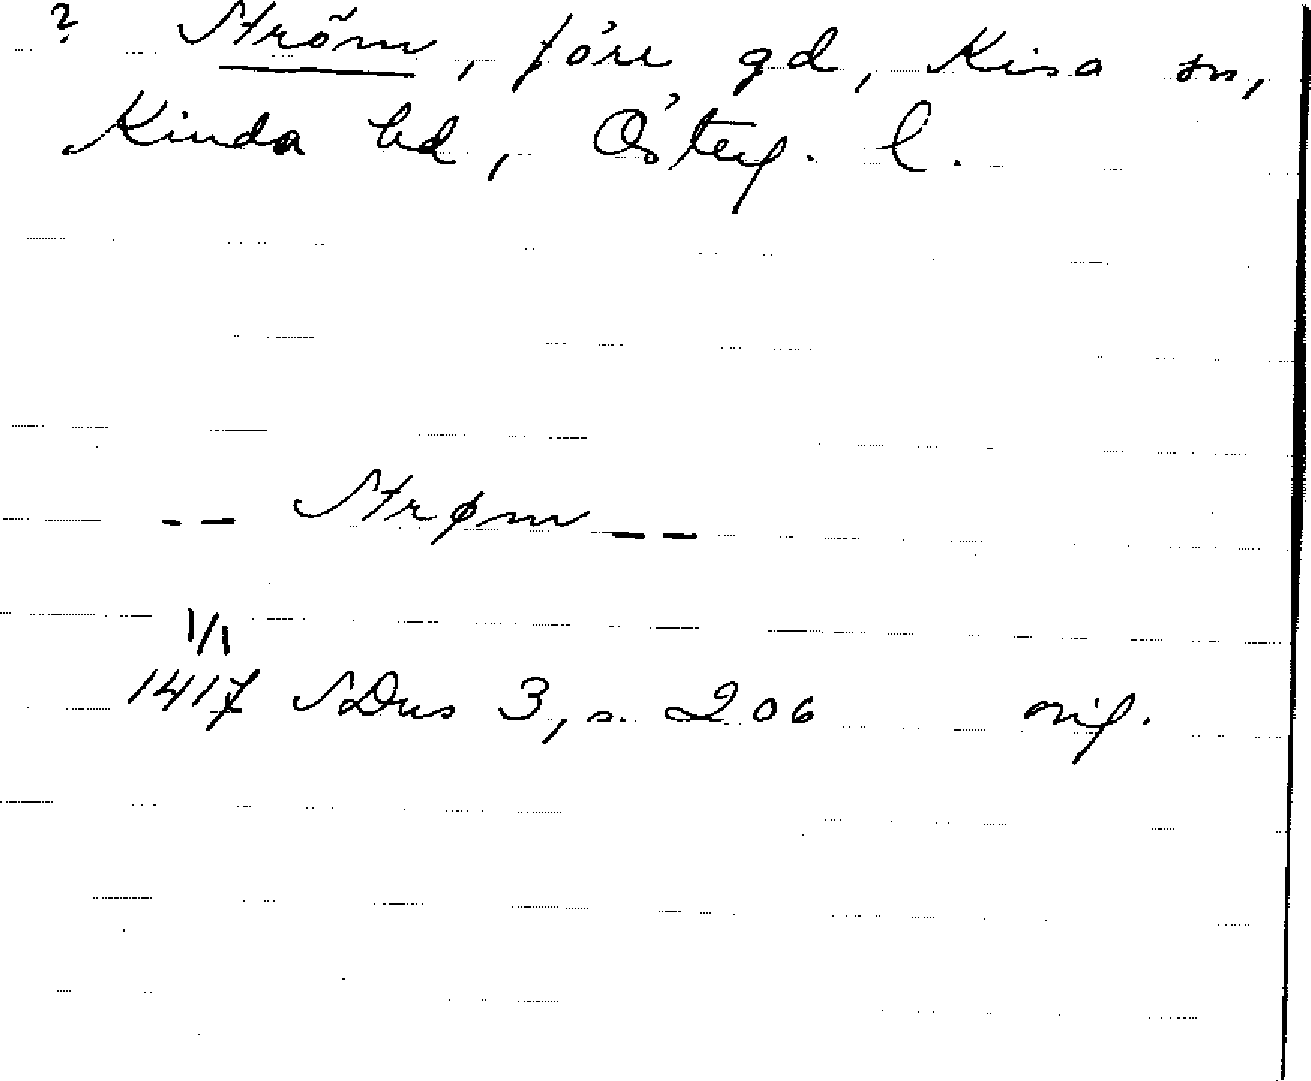 ? Ström, förr gd, Kisa sn,
Kinda hd, Österg. l.
-- Strøm --
1/1
1417 SDns 3, s. 206 orig.